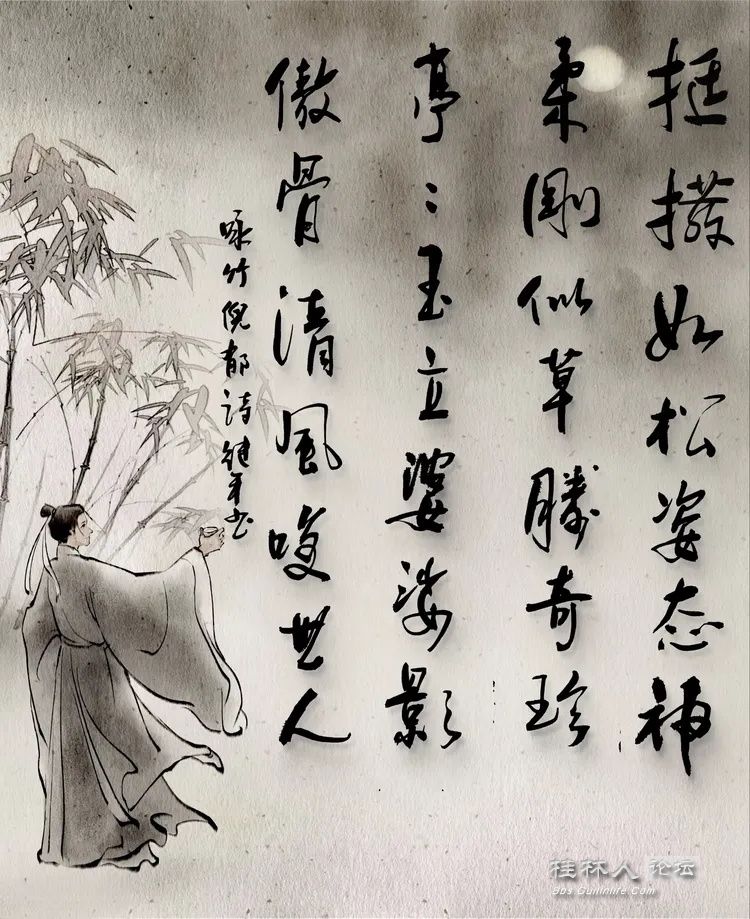 挺撥如松姿态神
柔剛似草勝奇珍
亭々玉立婆娑影
傲骨清風唤世人
咏竹倪郁詩书
桂林人论坛
Bbs.Guilinlife.Com